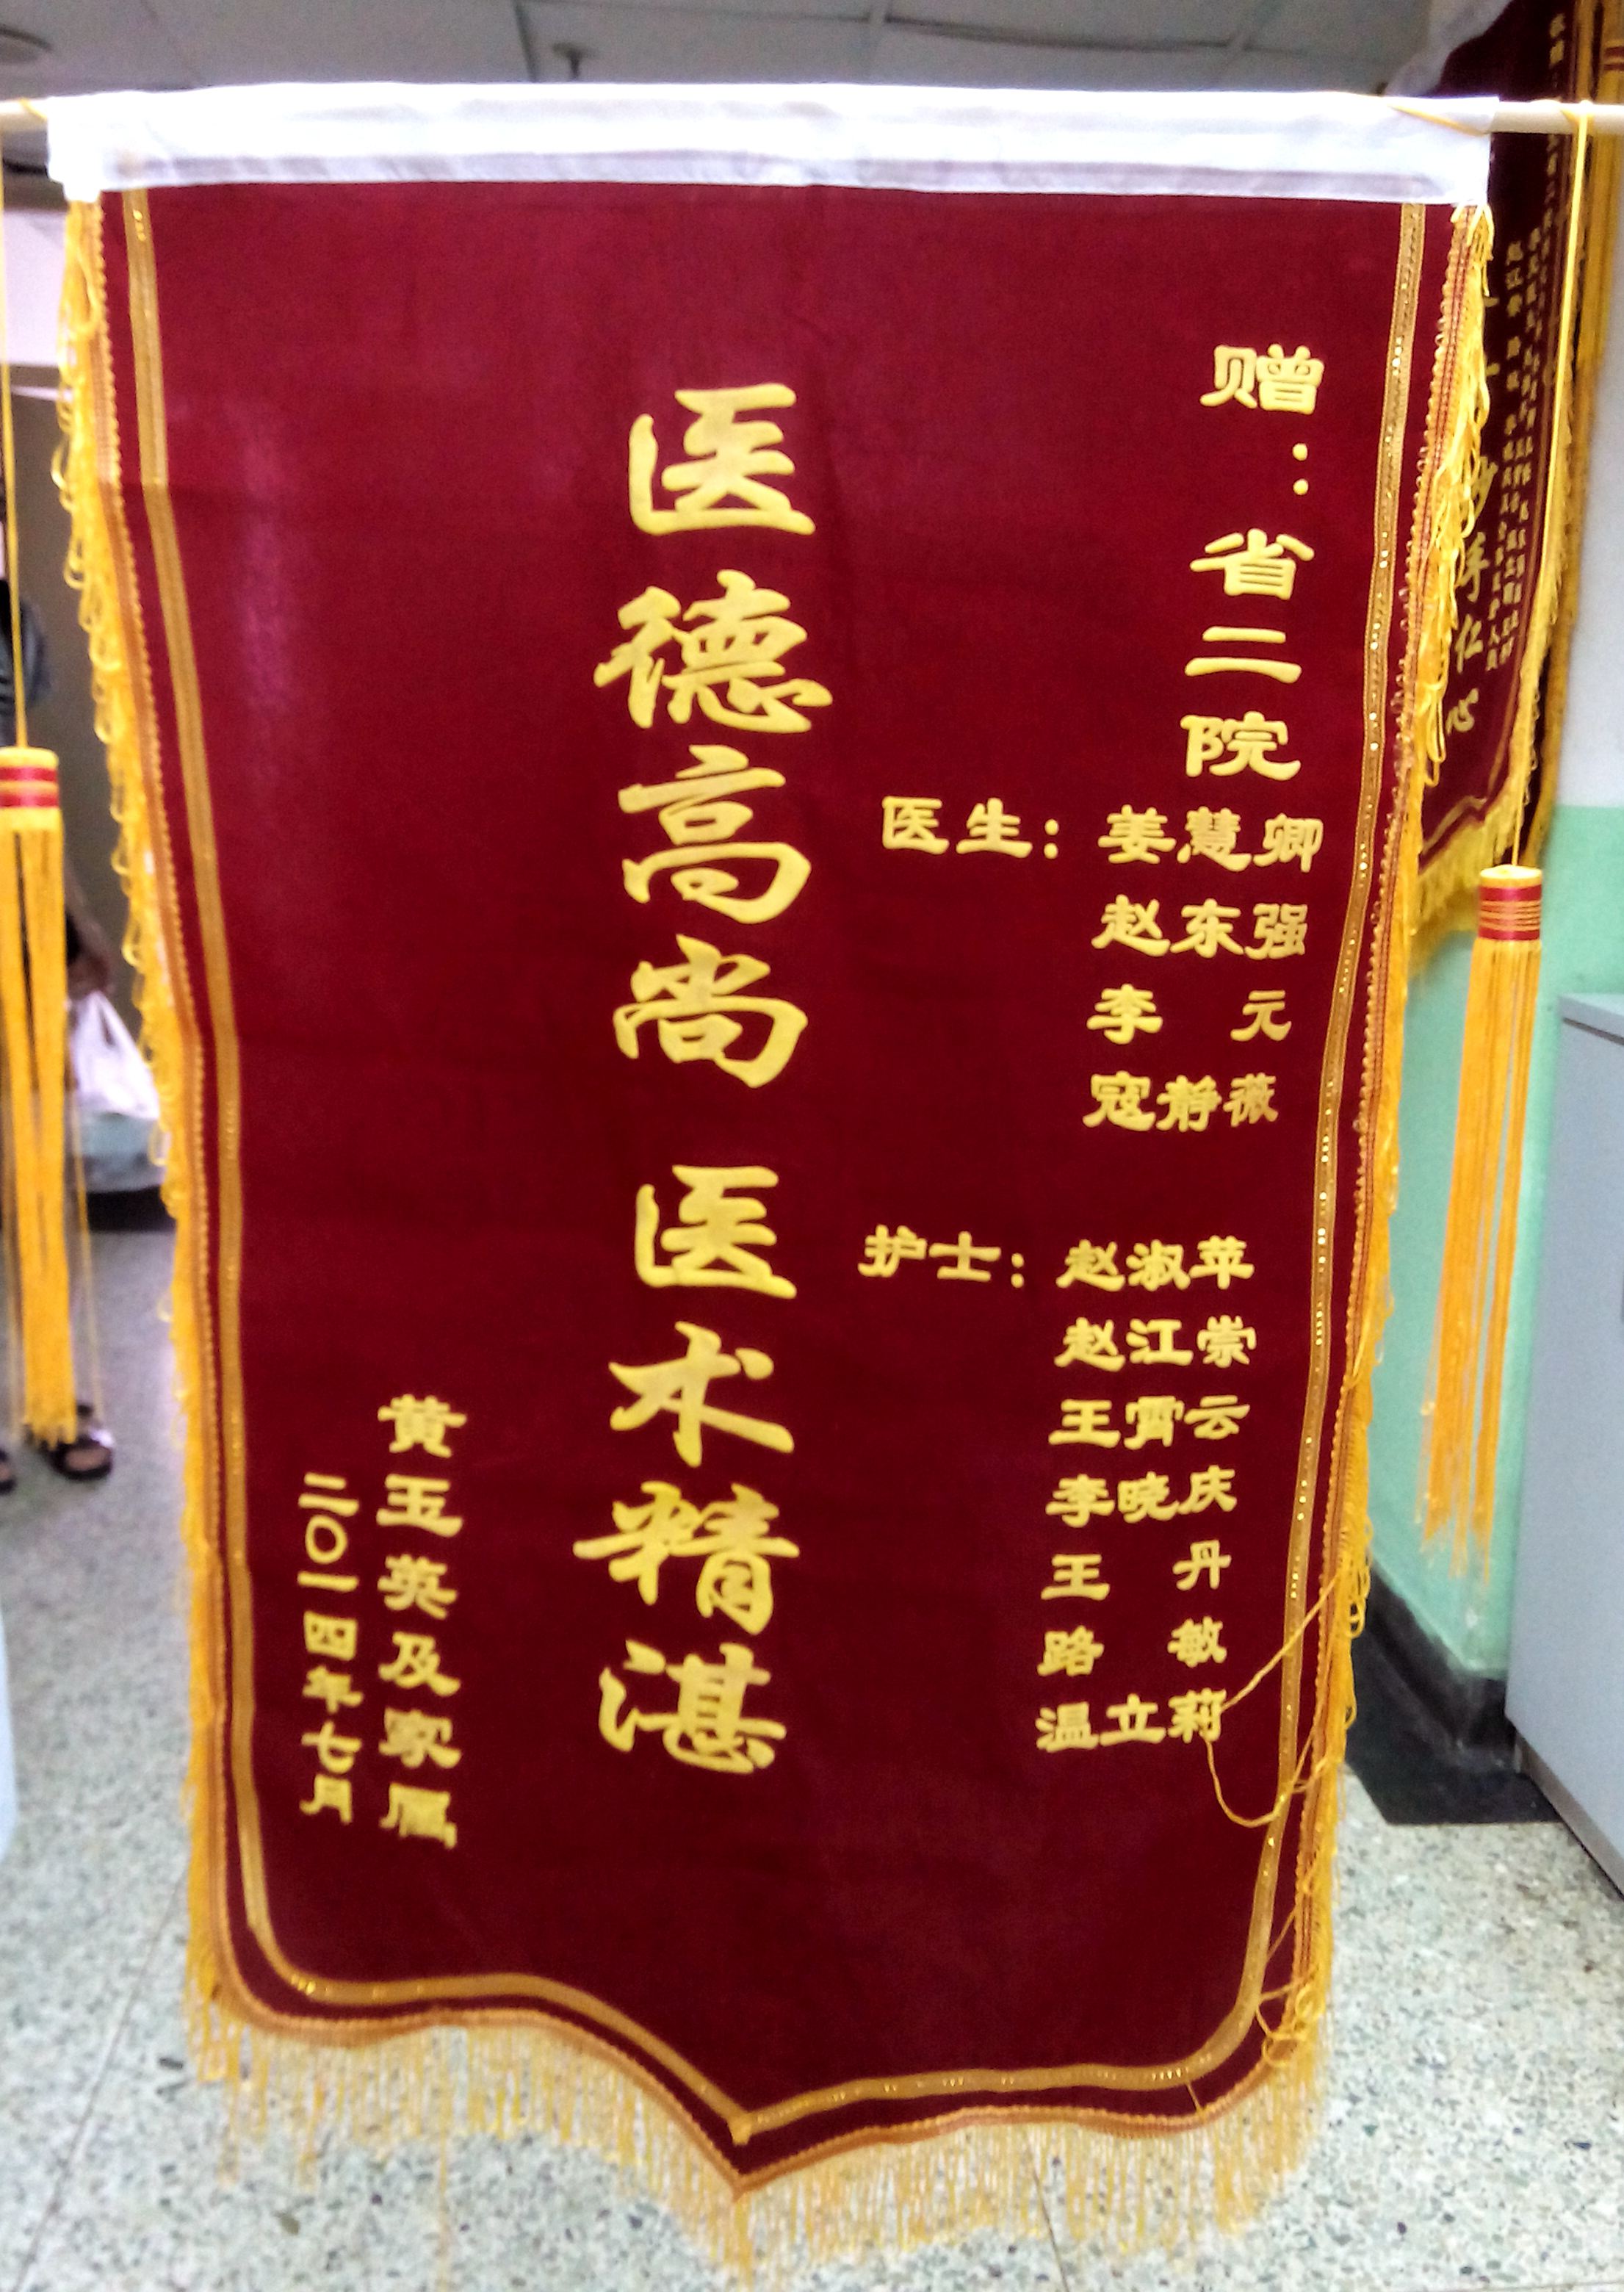 赠：省二院
医生：姜慧卿
赵东强
李元
寇静薇
护士：赵淑苹
赵江崇
王霄云
李晓庆
王丹
路敏
温立莉
医德高尚 医术精湛
黄玉英及家属
二〇一四年七月
手仁心